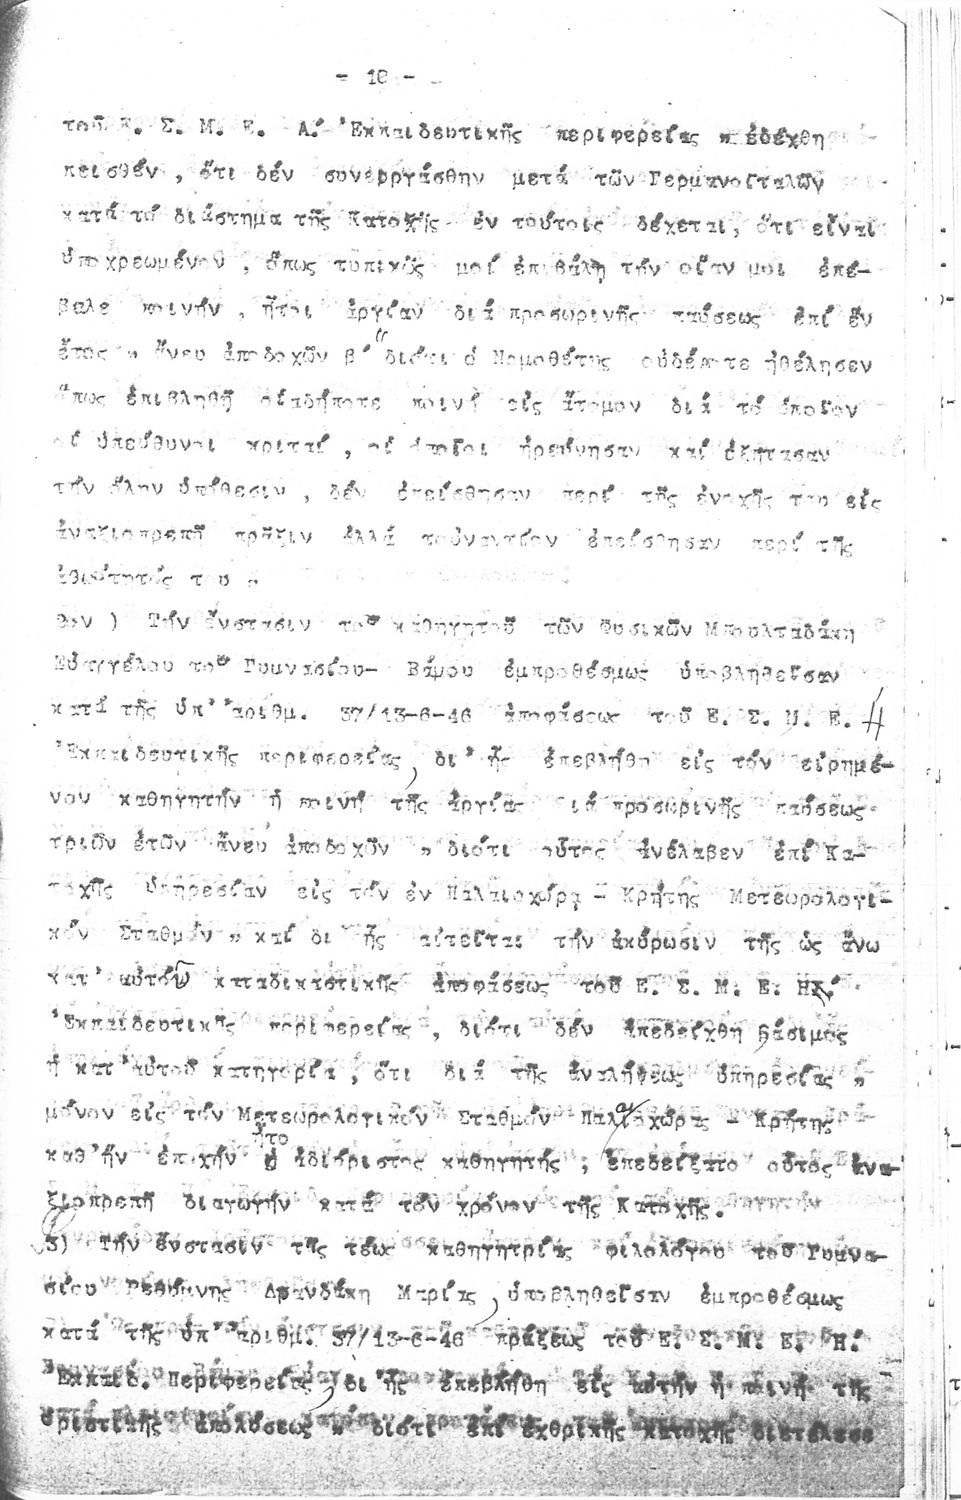 - 10 -
τοῦ Ε. Σ. Μ. Ε. Α.' Ἐκπαιδευτικῆς περιφερείας " ἐδέχθη
πεισθέν, ὅτι δέν συνειργάσθην μετά τῶν Γερμανοϊταλῶν
κατά τό διάστημα τῆς Κατοχῆς ἐν τούτοις δέχεται, ὅτι εἶναι
ὑποχρεωμένον, ὅπως τυπικῶς μοί ἐπιβάλῃ τήν οἵαν μοι ἐπέ-
βαλε ποινήν, ἤτοι ἀργίαν διά προσωρινῆς παύσεως ἐπί ἕν
ἔτος " ἄνευ ἀποδοχῶν β' "διότι ὁ Νομοθέτης οὐδέποτε ἠθέλησεν
ὅπως ἐπιβληθῇ οἱαδήποτε ποινή εἰς ἄτομον διά τό ὁποῖον
οἱ ὑπεύθυνοι κριταί, οἱ ὁποῖοι ἠρεύνησαν καί ἐξήτασαν
τήν ὅλην ὑπόθεσιν, δέν ἐπείσθησαν περί τῆς ἐνοχῆς του εἰς
ἀναξιοπρεπῆ πρᾶξιν ἀλλά τοὐναντίον ἐπείσθησαν περί τῆς
ἀθωότητός του "
2ον ) Τήν ἔνστασιν τοῦ καθηγητοῦ τῶν Φυσικῶν Μπουλταδάκη
Εὐαγγέλου τοῦ Γυμνασίου- Βάμου ἐμπροθέσμως ὑποβληθεῖσαν
κατά τῆς ὑπ' ἀριθμ. 37/13-6-46 ἀποφάσεως τοῦ Ε. Σ. Μ. Ε. Η
Ἐκπαιδευτικῆς περιφερείας, δι' ἧς ἐπεβλήθη εἰς τόν εἰρημέ-
νον καθηγητήν ἡ ποινή τῆς ἀργίας ιά προσωρινῆς παύσεως
τριῶν ἐτῶν ἄνευ ἀποδοχῶν " διότι οὗτος ἀνέλαβεν ἐπί Κα-
τοχῆς ὑπηρεσίαν εἰς τόν ἐν Παλαιοχώρᾳ - Κρήτης Μετεωρολογι-
κόν Σταθμόν " καί δι' ἧς αἰτεῖται τήν ἀκύρωσιν τῆς ὡς ἄνω
κατ' αὐτοῦ καταδικαστικῆς ἀποφάσεως τοῦ Ε. Σ. Μ. Ε. Η.'
Ἐκπαιδευτικῆς περιφερείας, διότι δέν ἀπεδείχθη βάσιμος
ἡ κατ' αὐτοῦ κατηγορία, ὅτι διά τῆς ἀναλήψεως ὑπηρεσίας "
μόνον εἰς τόν Μετεωρολογικόν Σταθμόν Παλαιοχώρας - Κρήτης
καθ' ἥν ἐποχήν ἦτο ὁ ἀδιόριστος καθηγητής ; ἐπεδείξατο οὗτος ἀνα-
ξιοπρεπῆ διαγωγήν κατά τόν χρόνον τῆς Κατοχῆς.
3) Τήν ἔνστασιν τῆς τέως καθηγητρίας φιλολόγου τοῦ Γυμνα-
σίου Ρεθύμνης Δρανδάκη Μαρίας, ὑποβληθεῖσαν ἐμπροθέσμως
κατά τῆς ὑπ' ἀριθμ. 37/13-6-46 πράξεως τοῦ Ε. Σ. Μ. Ε. Η.'
Ἐκπαιδ. Περιφερείας, δι' ἧς ἐπεβλήθη εἰς αὐτήν ἡ ποινή τῆς
ὁριστικῆς ἀπολύσεως " διότι ἐπί ἐχθρικῆς κατοχῆς διετέλεσε